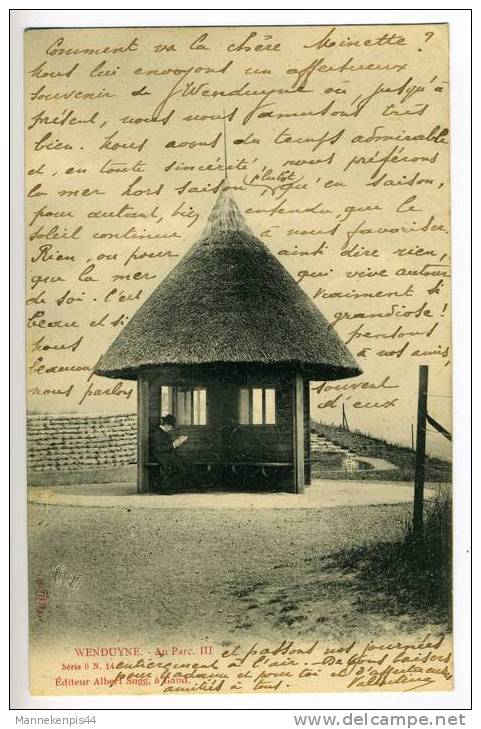 Comment va la chère Minette ?
Nous lui envoyons un affectueux
souvenir de Wenduyne où, jusqu'à
présent, nous nous amusons très
bien. Nous avons du temps admirable
et, en toute sincérité, nous préférons
la mer hors saison plutôt, qu'en saison,
pour autant, bien entendu, que le
soleil continue à nous favoriser.
Rien, ou pour ainsi dire rien,
que la mer qui vive autour
de soi. C'est vraiment si
beau et si grandiose !
Nous pensons
beaucoup à nos amis,
nous parlons souvent
d'eux
WENDUYNE. - Au Parc. III
Série 6 N. 14
Éditeur Albert Sugg, à Gand.
et passons nos journées
entièrement à l'air. De bons baisers
pour madame et pour toi et d'affectueuses
amitiés à tous. Valentine
Mannekenpis44
www.delcampe.net